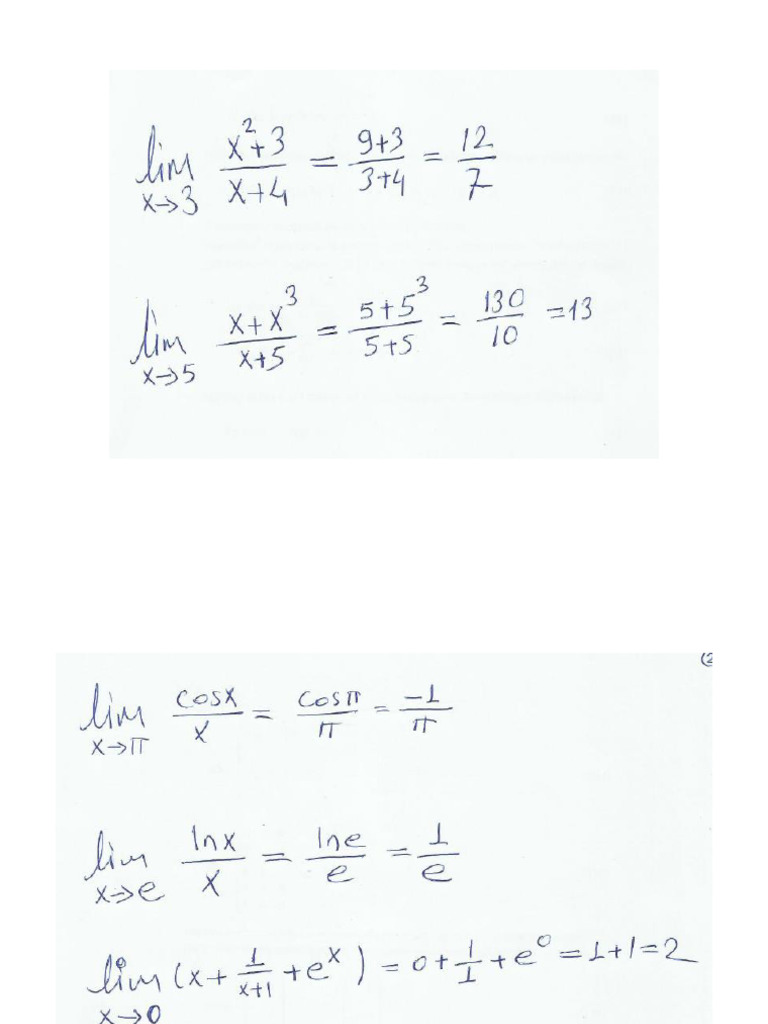 lim x→3 (x²+3)/(x+4) = (9+3)/(3+4) = 12/7
lim x→5 (x+x³)/(x+5) = (5+5³)/(5+5) = 130/10 = 13
(2
lim x→π cosx/x = cosπ/π = -1/π
lim x→e lnx/x = lne/e = 1/e
lim x→0 (x + 1/(x+1) + eˣ) = 0 + 1/1 + e⁰ = 1+1 = 2